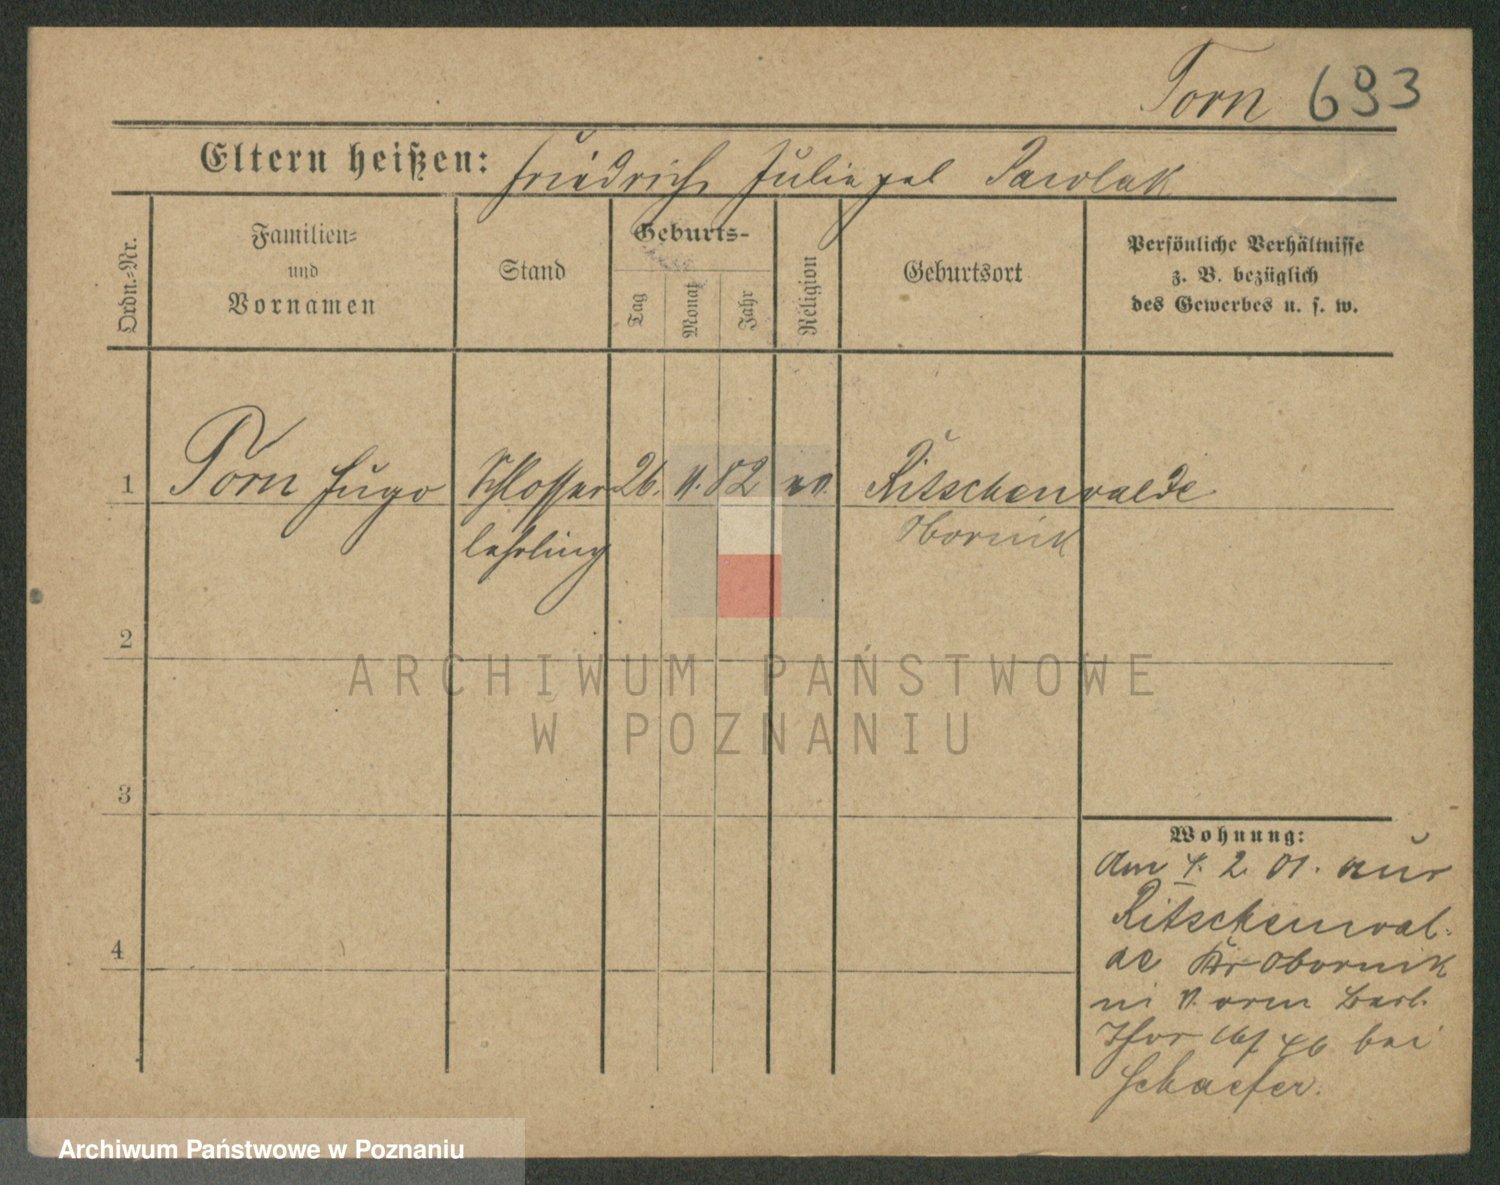 Torn 693
Eltern heißen: Friedrich Julie geb Pawlak
Ordn.=Nr.
Familien=
und
Vornamen
Stand
Geburts-
Tag
Monat
Jahr
Religion
Geburtsort
Persönliche Verhältnisse
z. B. bezüglich
des Gewerbes u. s. w.
1 Torn Hugo Schlosser 26. 11. 82 ev. Ritschenwalde
lehrling Obornik
2
3
4
Wohnung:
Am 4. 2. 01. aus
Ritschenwal-
de Kr Obornik
Berl.
Thor bei
Schaefer.
ARCHIWUM PAŃSTWOWE
W POZNANIU
Archiwum Państwowe w Poznaniu